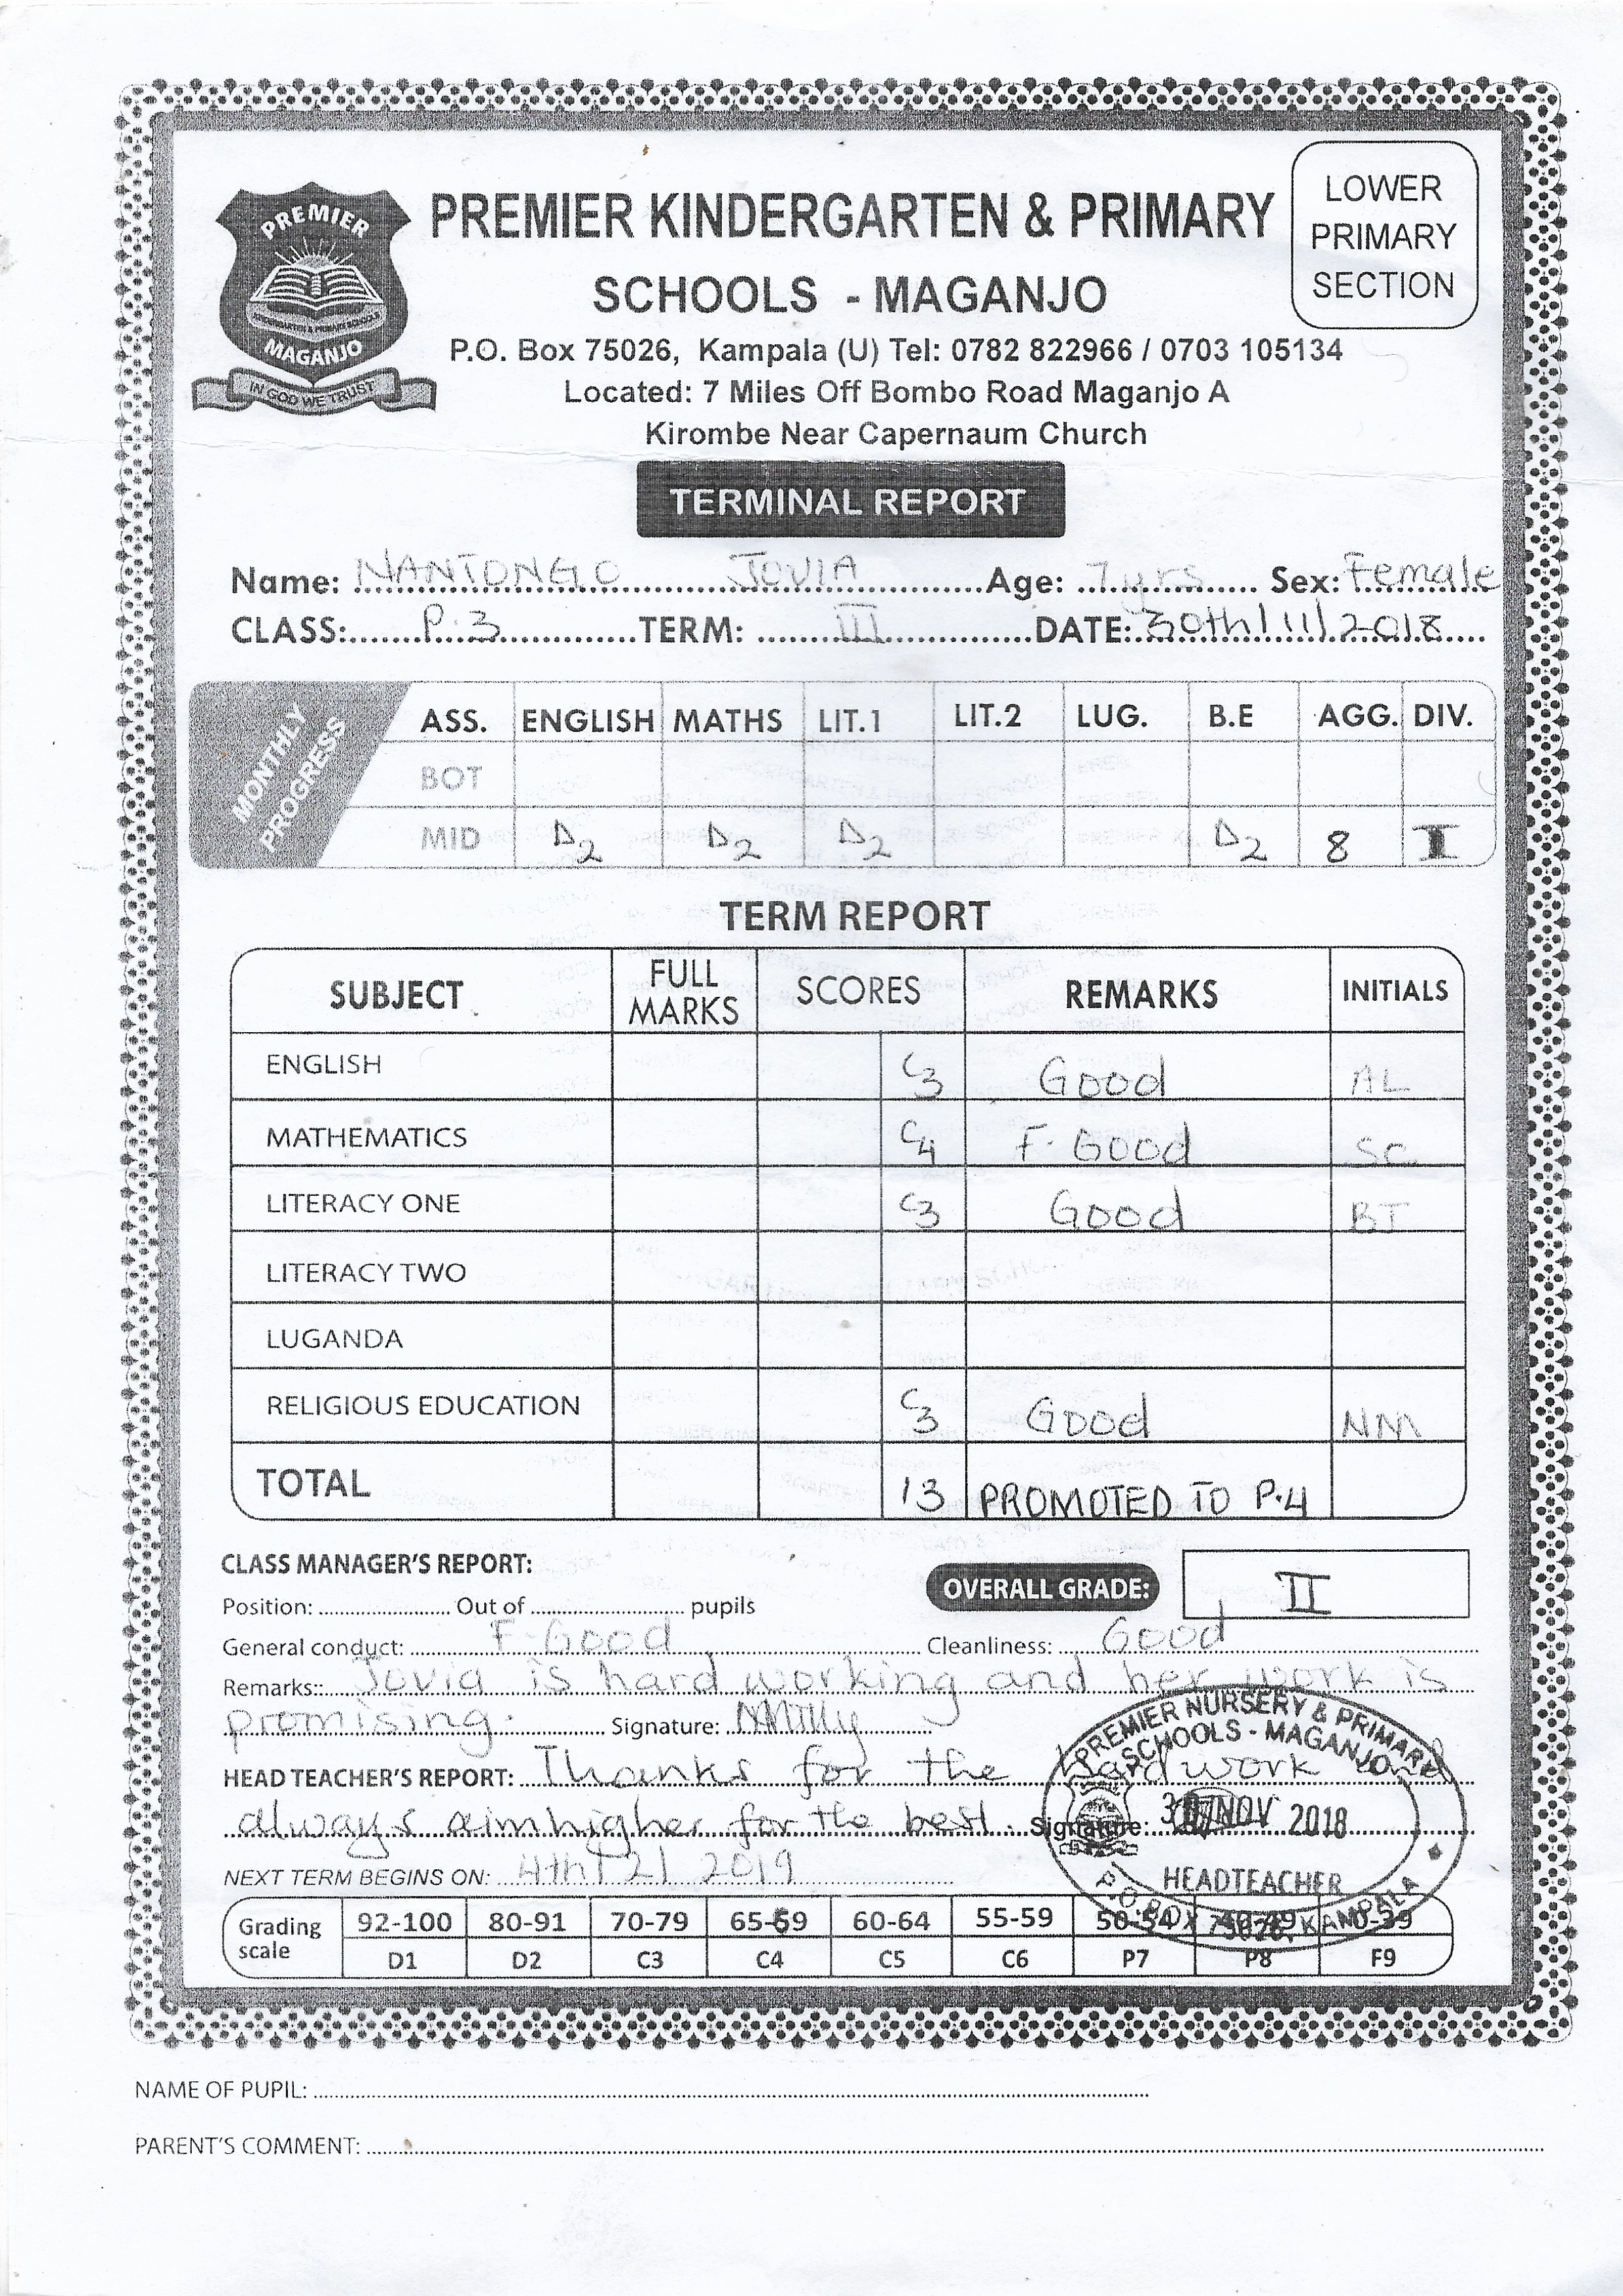 PREMIER
KINDERGARTEN & PRIMARY SCHOOLS
MAGANJO
IN GOD WE TRUST
PREMIER KINDERGARTEN & PRIMARY
SCHOOLS - MAGANJO
LOWER
PRIMARY
SECTION
P.O. Box 75026, Kampala (U) Tel: 0782 822966 / 0703 105134
Located: 7 Miles Off Bombo Road Maganjo A
Kirombe Near Capernaum Church
TERMINAL REPORT
Name: NANTONGO JOVIA Age: 7yrs Sex: Female
CLASS: P.3 TERM: III DATE: 30th/11/2018
MONTHLY PROGRESS
ASS. ENGLISH MATHS LIT.1 LIT.2 LUG. B.E AGG. DIV.
BOT
MID D2 D2 D2 D2 8 I
TERM REPORT
SUBJECT FULL MARKS SCORES REMARKS INITIALS
ENGLISH C3 Good AL
MATHEMATICS C4 F. Good SC
LITERACY ONE C3 Good BT
LITERACY TWO
LUGANDA
RELIGIOUS EDUCATION C3 Good NM
TOTAL 13 PROMOTED TO P.4
CLASS MANAGER'S REPORT:
OVERALL GRADE: II
Position: Out of pupils
General conduct: F-Good Cleanliness: Good
Remarks: Jovia is hard working and her work is
promising. Signature:
HEAD TEACHER'S REPORT: Thanks for the hard work and
always aim higher for the best. Signature:
PREMIER NURSERY & PRIMARY
SCHOOLS - MAGANJO
30 NOV 2018
HEADTEACHER
P.O. BOX 75026, KAMPALA
NEXT TERM BEGINS ON: 4th/2/2019
Grading scale 92-100 80-91 70-79 65-69 60-64 55-59 50-54 40-49 0-39
D1 D2 C3 C4 C5 C6 P7 P8 F9
NAME OF PUPIL:
PARENT'S COMMENT: